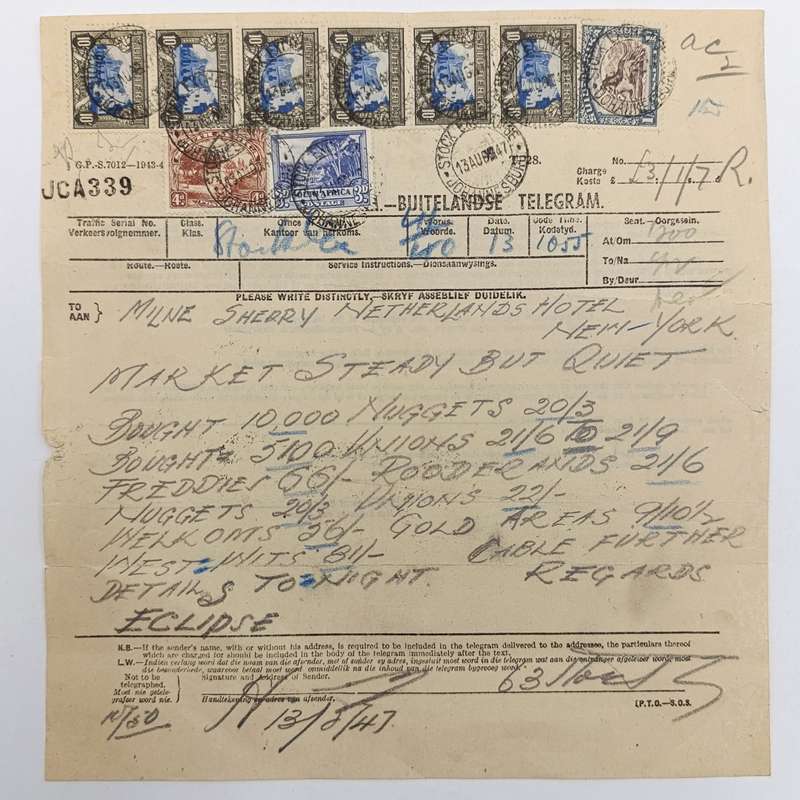 ac
G.P.-S.7012—1943-4
T.228.
No.
JCA339
Charge
Koste } £3/1/7 R.
STOCK EXCHANGE
13 AUG 47
JOHANNESBURG
—BUITELANDSE TELEGRAM.
Traffic Serial No. Class. Office of Words. Date. Code Time. Sent.—Oorgesein.
Verkeersvolgnommer. Klas. Kantoor van herkoms. Woorde. Datum. Kodetyd.
13 1055
At/Om 1200
To/Na
By/Deur
Route.—Roete. Service Instructions.—Diensaanwysings.
PLEASE WRITE DISTINCTLY.—SKRYF ASSEBLIEF DUIDELIK.
TO
AAN } MILNE SHERRY NETHERLANDS HOTEL
NEW-YORK.
MARKET STEADY BUT QUIET
BOUGHT 10,000 NUGGETS 20/3
BOUGHT 5100 UNIONS 21/6 TO 21/9
FREDDIES 66/- ROODERANDS 21/6
NUGGETS 20/3 UNIONS 22/-
WELKOMS 26/- GOLD AREAS 9/10½
WEST WITS 81/- CABLE FURTHER
DETAILS TO-NIGHT. REGARDS
ECLIPSE
N.B.—If the sender's name, with or without his address, is required to be included in the telegram delivered to the addressee, the particulars thereof
which are charged for should be included in the body of the telegram immediately after the text.
L.W.—Indien verlang word dat die naam van die afsender, met of sonder sy adres, ingesluit moet word in die telegram wat aan die ontvanger afgelewer word, moet
die besonderhede, waarvoor betaal moet word onmiddellik na die inhoud van die telegram bygevoeg word.
Not to be
telegraphed.
Moet nie getele-
grafeer word nie.
Signature and Address of Sender.
Handtekening en adres van afsender.
13/8/47.
[P.T.O.—S.O.S.